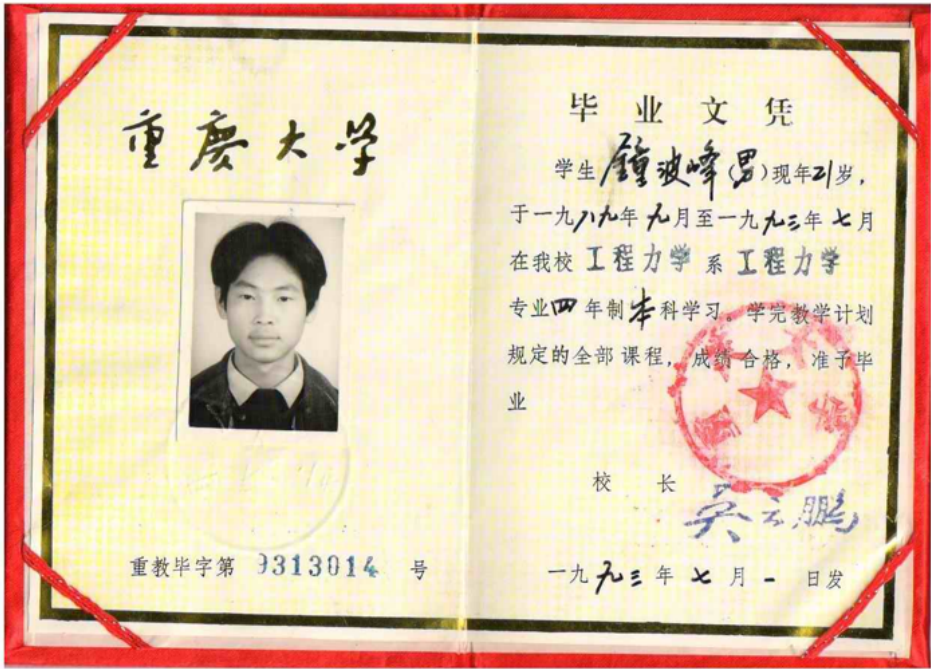 重慶大学
重教毕字第 9313014 号
毕业文凭
学生鍾波峰(男)现年21岁，
于一九八九年九月至一九九三年七月
在我校 工程力学 系 工程力学
专业四年制本科学习。学完教学计划
规定的全部课程，成绩合格，准予毕
业
校长
吴云鹏
一九九三年七月一日发